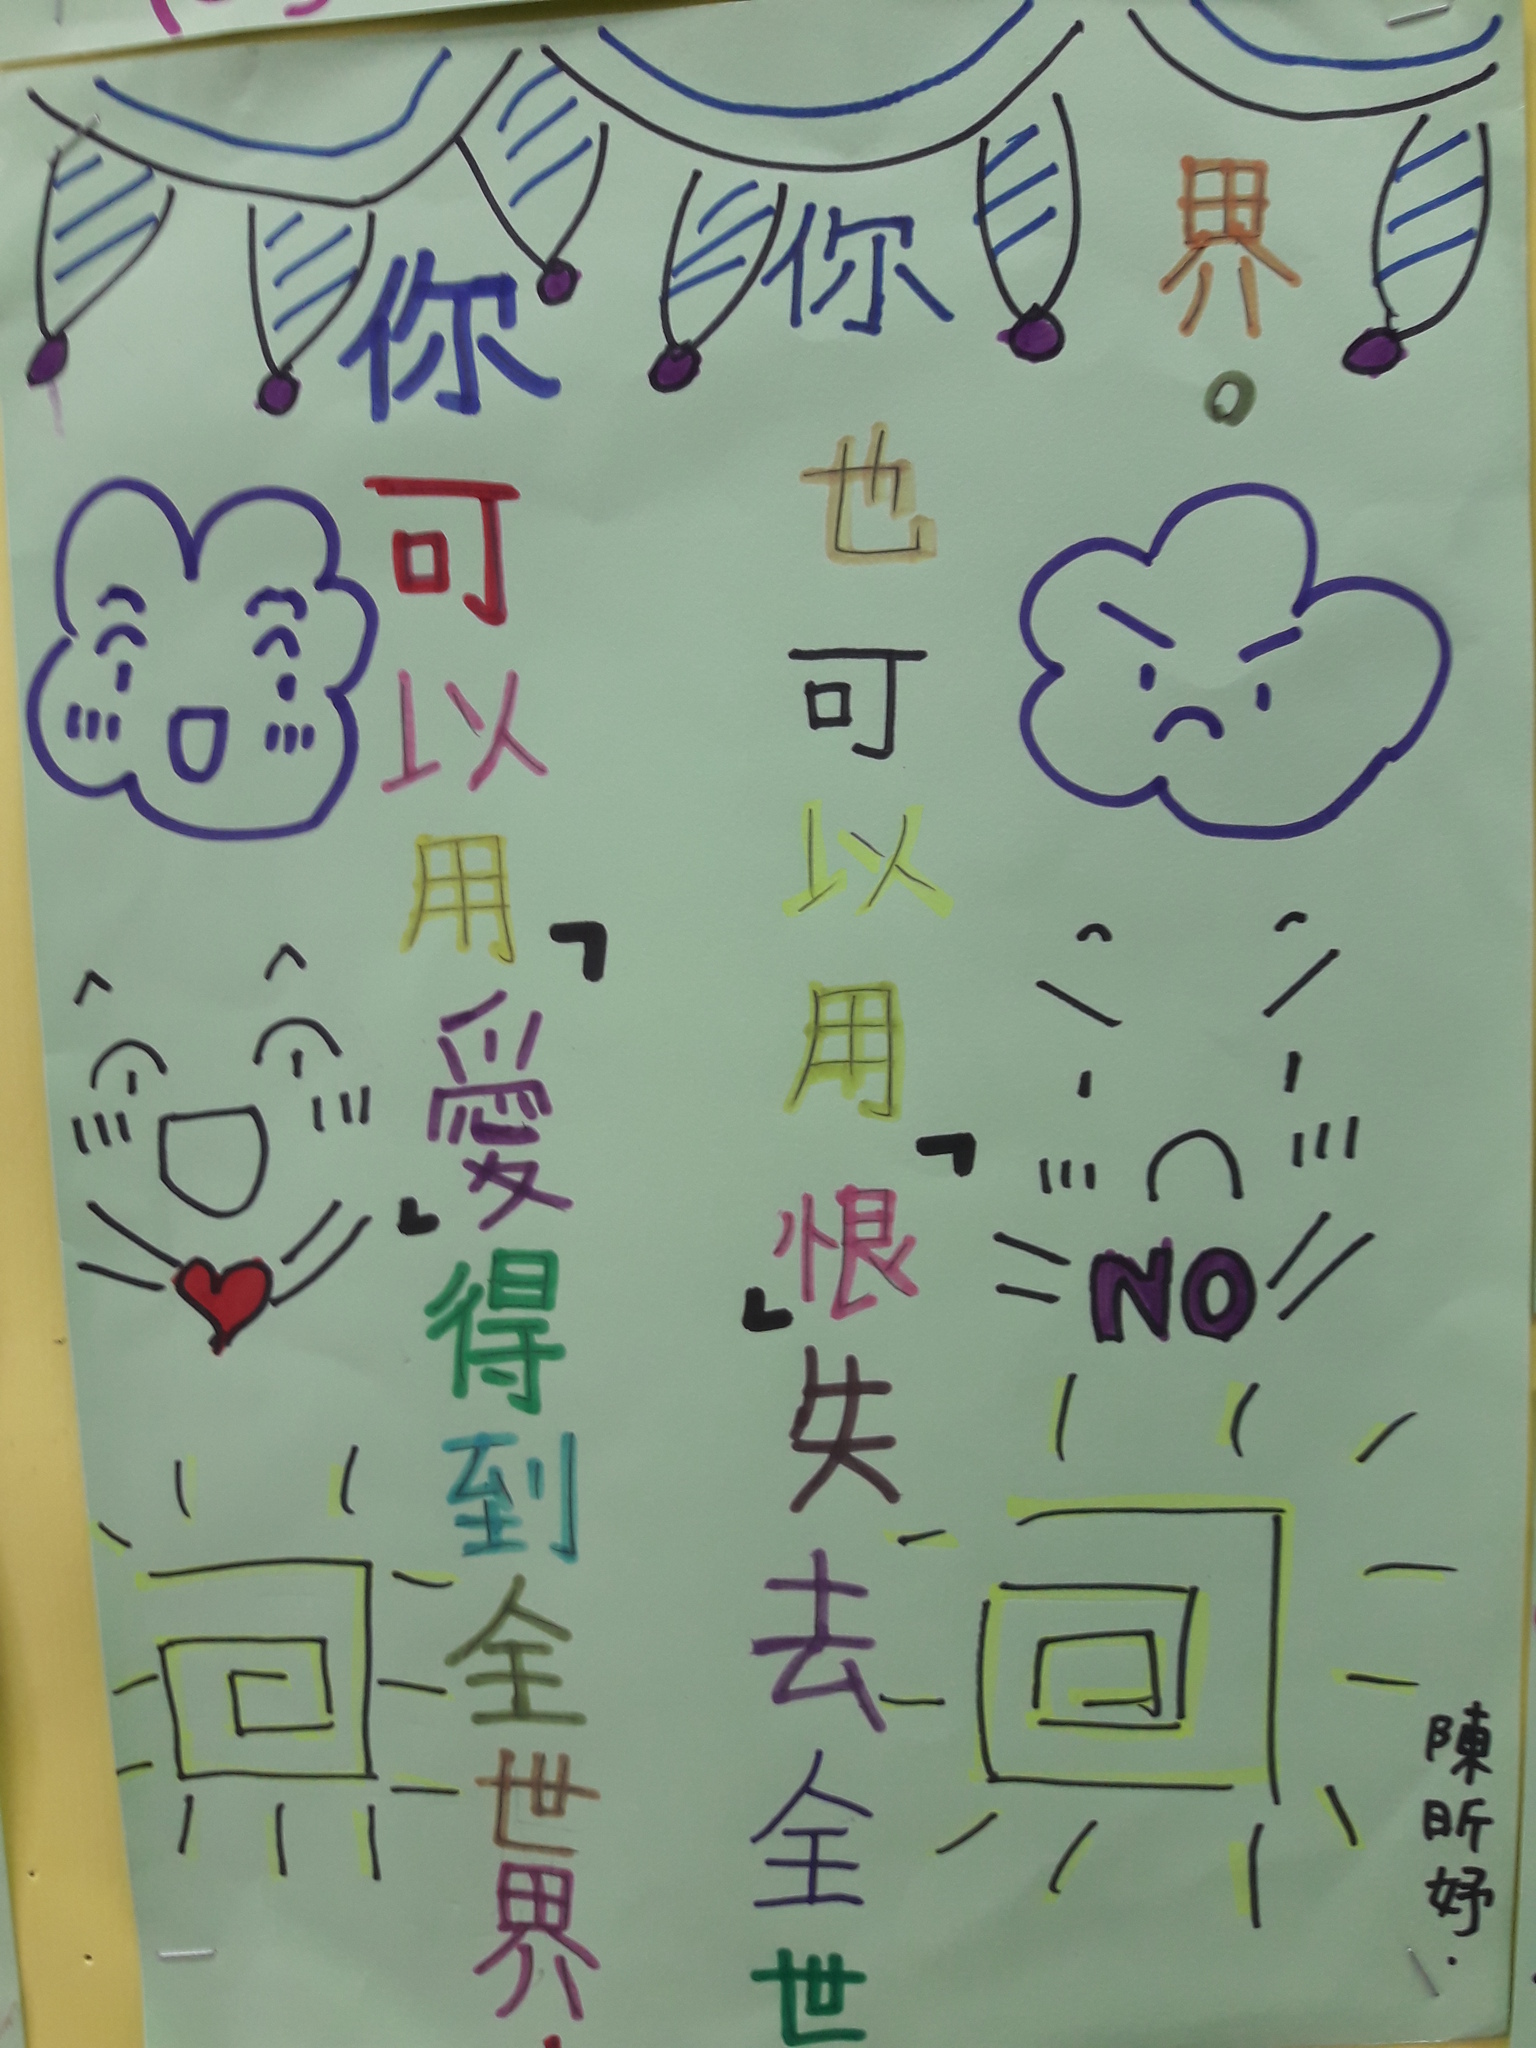 你可以用「愛」得到全世界，
你也可以用「恨」失去全世
界。
NO
陳昕妤.